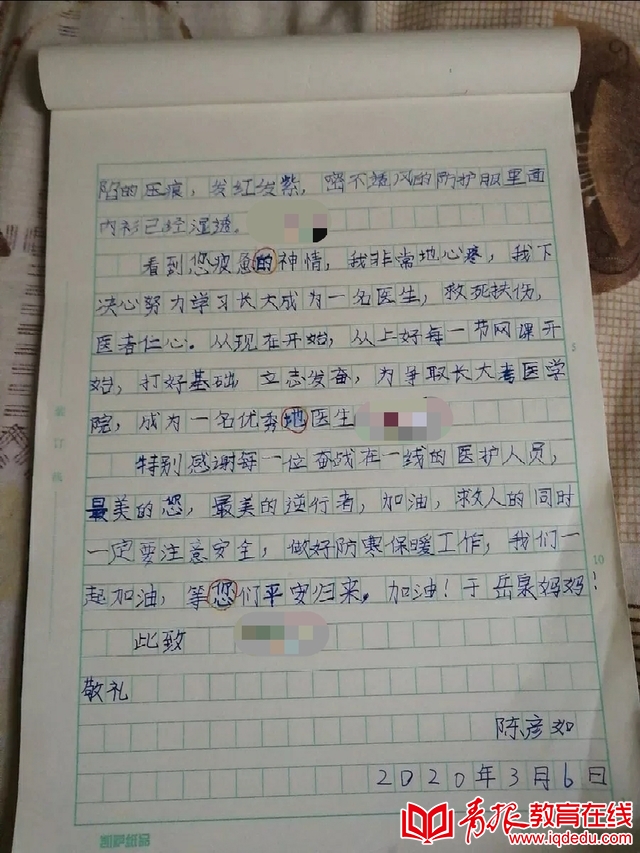 陷的压痕，发红发紫，密不透风的防护服里面
内衫已经湿透。
看到您疲惫的神情，我非常地心疼，我下
决心努力学习长大成为一名医生，救死扶伤，
医者仁心。从现在开始，从上好每一节网课开
始，打好基础，立志发奋，为争取长大考医学
院，成为一名优秀地医生
特别感谢每一位奋战在一线的医护人员，
最美的您，最美的逆行者，加油，救人的同时
一定要注意安全，做好防寒保暖工作，我们一
起加油，等您们平安归来。加油！于岳泉妈妈！
此致
敬礼
陈彦如
2020年3月6日
5
10
青报教育在线
www.iqdedu.com